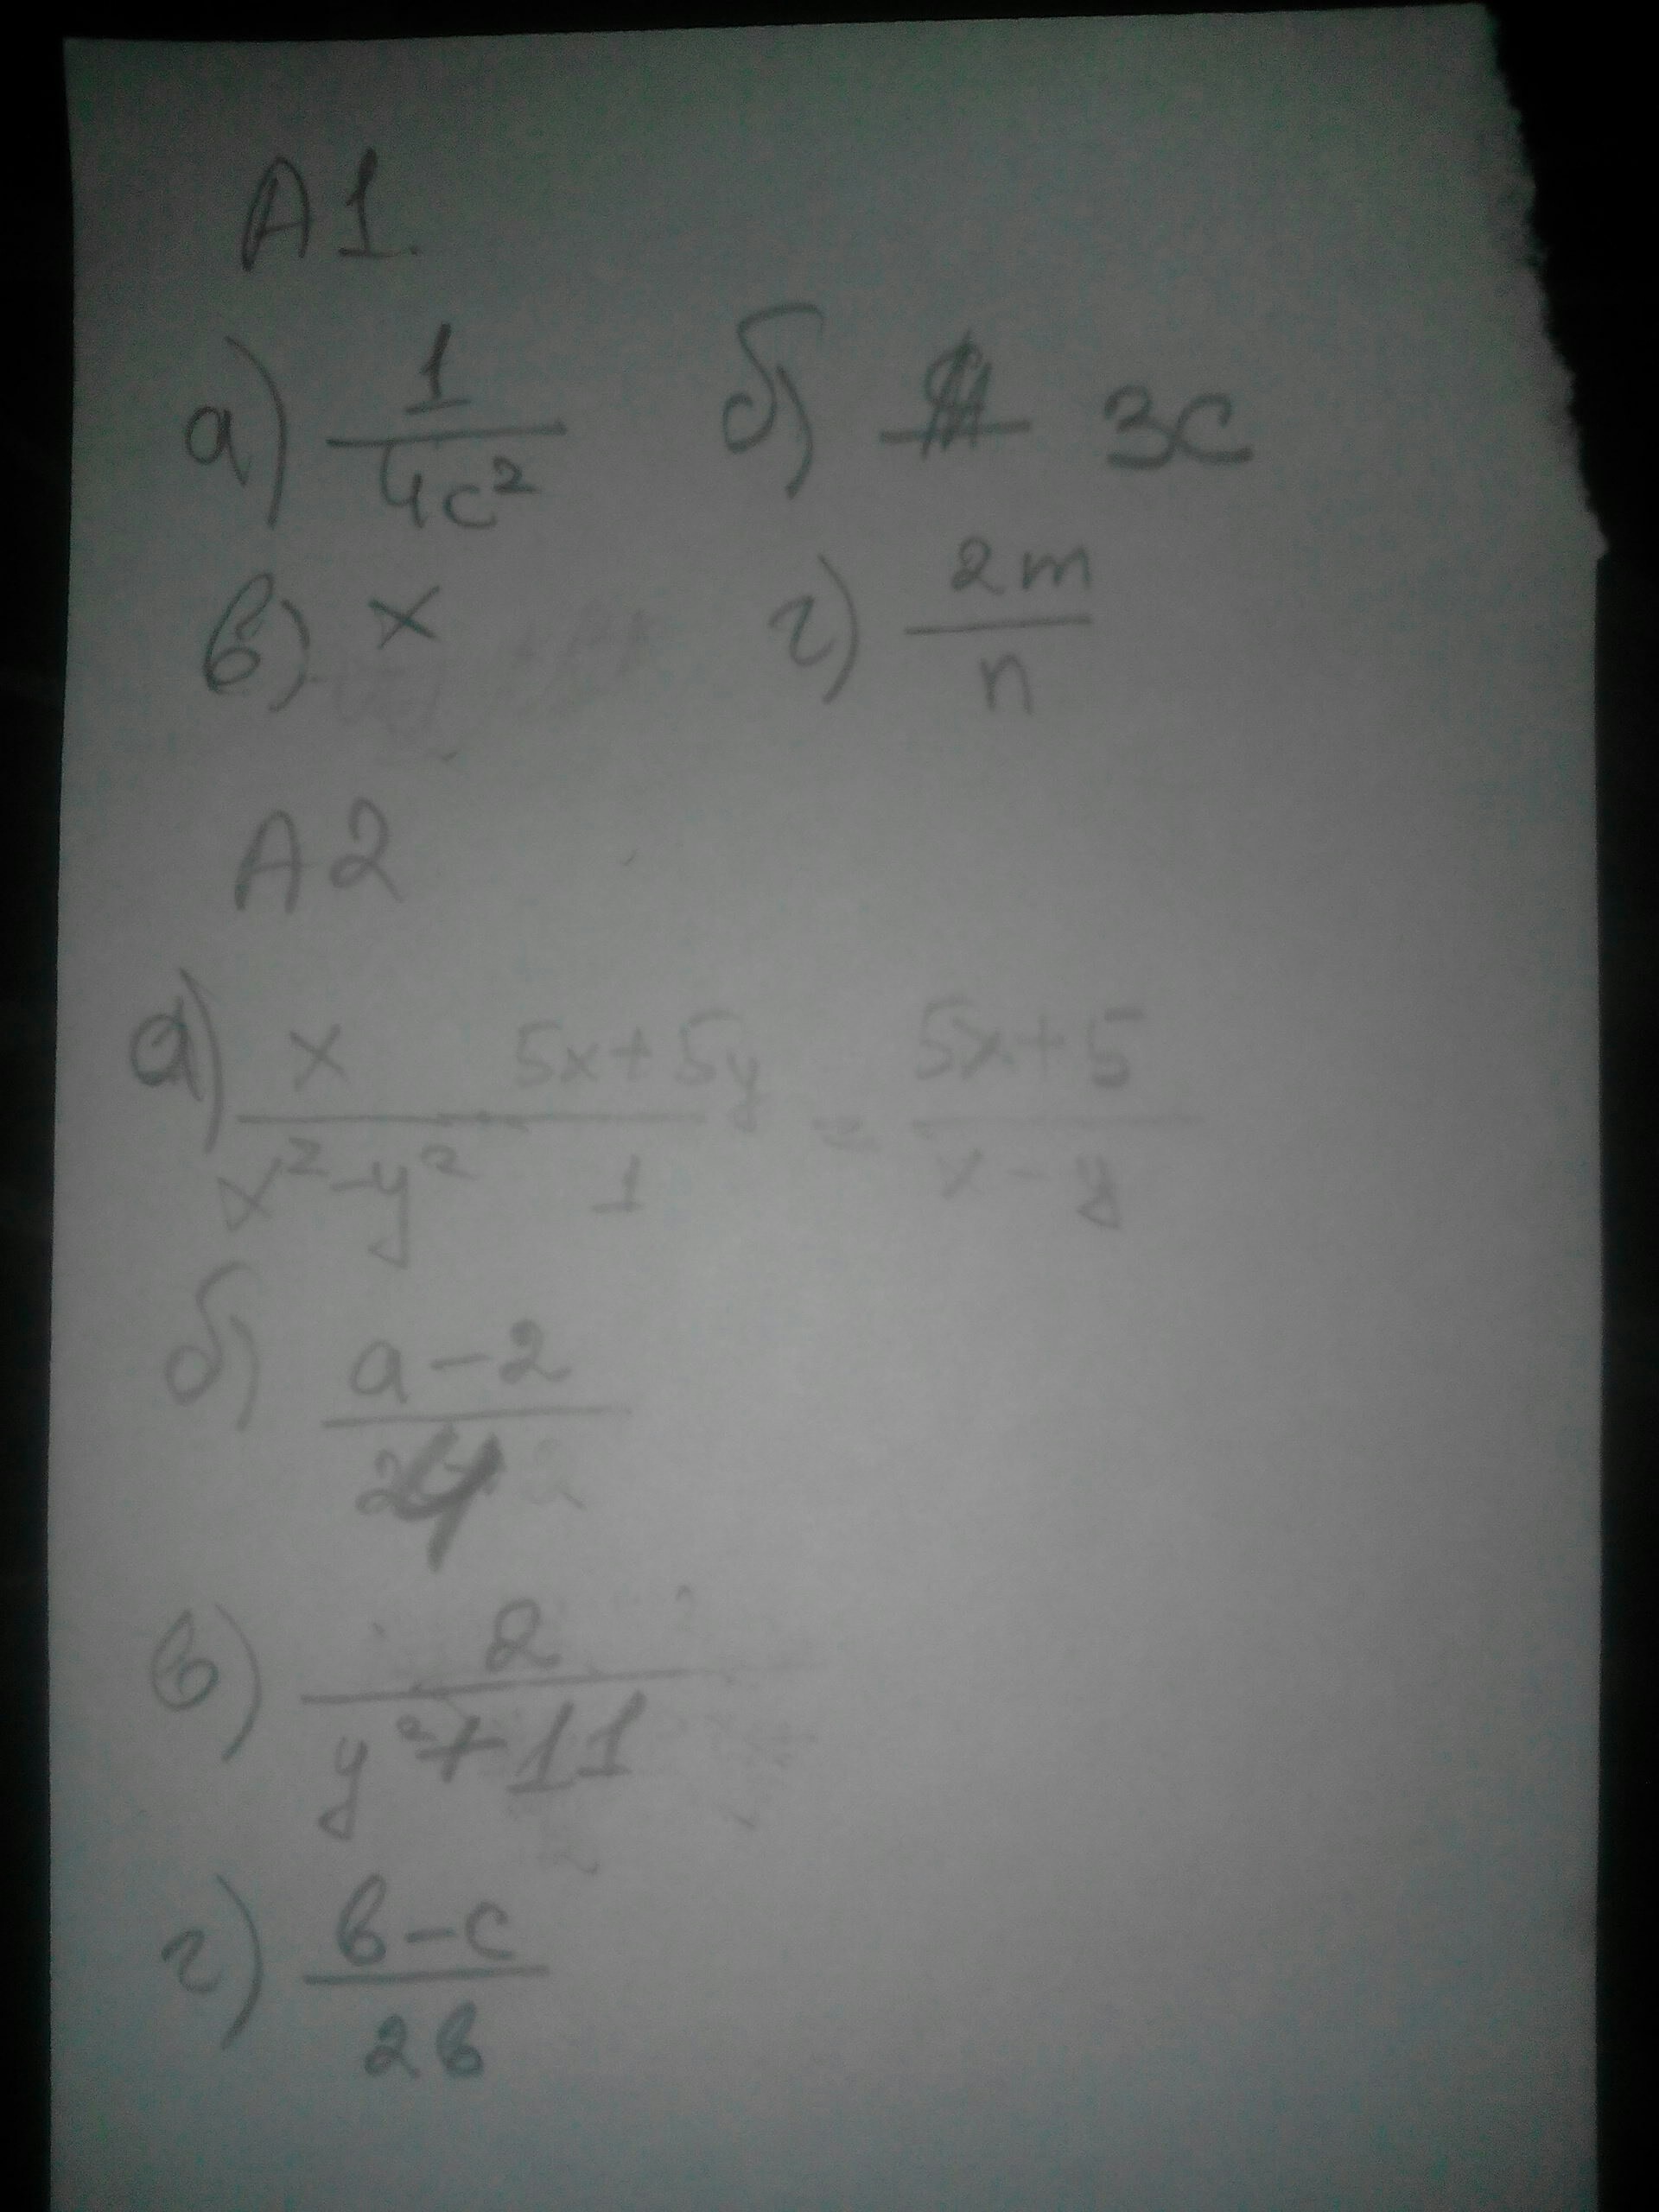 А1.
а) 1/4c² б) 3c
в) x г) 2m/n
А2
а) x/x²-y² 5x+5y/1 = 5x+5/x-y
б) a-2/2
в) 2/y²+11
г) b-c/2b